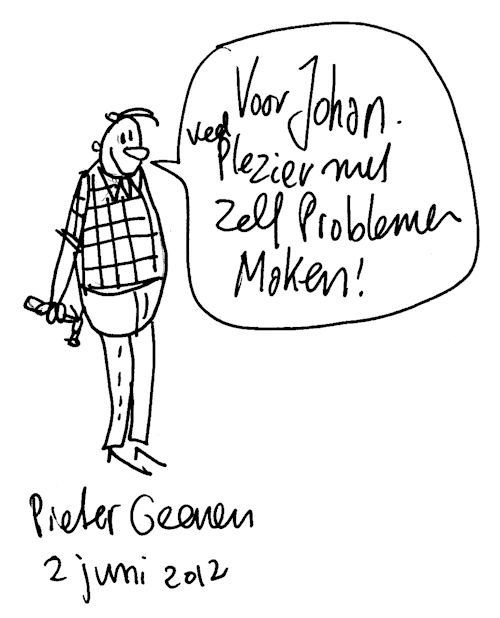 Voor Johan.
veel
Plezier met
Zelf Problemen
Maken!
Pieter Geenen
2 juni 2012